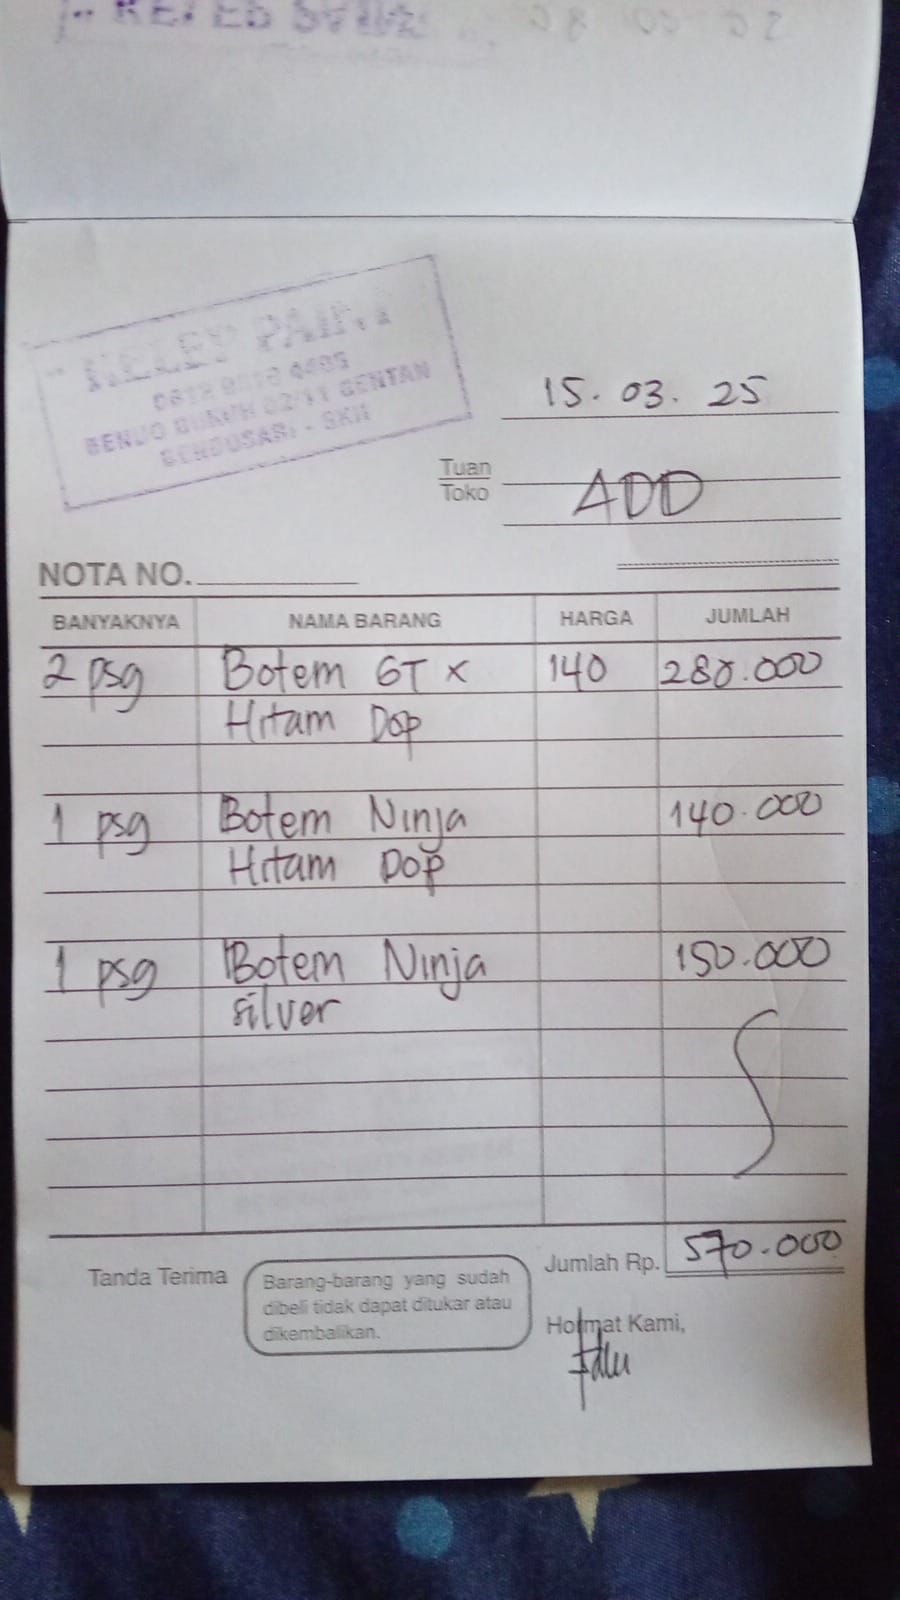 15. 03. 25
Tuan
Toko
ADD
NOTA NO.
BANYAKNYA NAMA BARANG HARGA JUMLAH
2 psg Botem GTX 140 280.000
Hitam Dop
1 psg Botem Ninja 140.000
Hitam Dop
1 psg Botem Ninja 150.000
silver
Jumlah Rp. 570.000
Tanda Terima
Barang-barang yang sudah
dibeli tidak dapat ditukar atau
dikembalikan.
Hormat Kami,